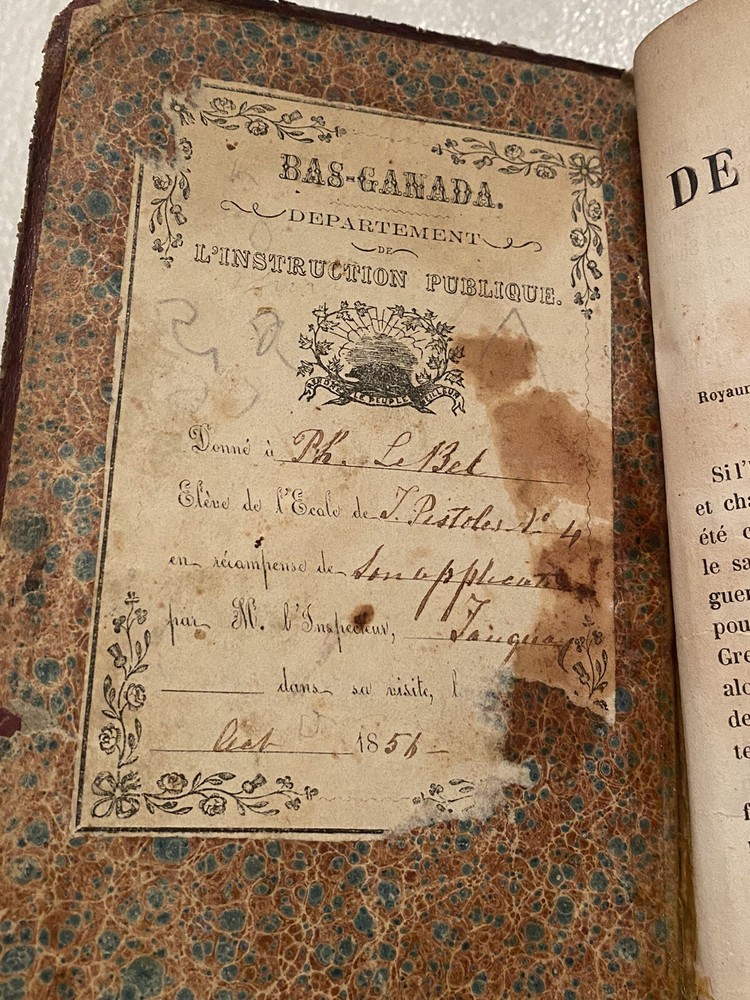 BAS-CANADA.
DEPARTEMENT
DE
L'INSTRUCTION PUBLIQUE.
RENDRE LE PEUPLE MEILLEUR
Donné à Ph. LeBel
Elève de l'Ecole de T. Pistoles No 4
en récompense de Son application
par M. l'Inspecteur, Tanguay
dans sa visite, l
Oct 1856
DE
Royaum
Si l'
et cha
été c
le sa
guer
pou
Gre
alo
de
te